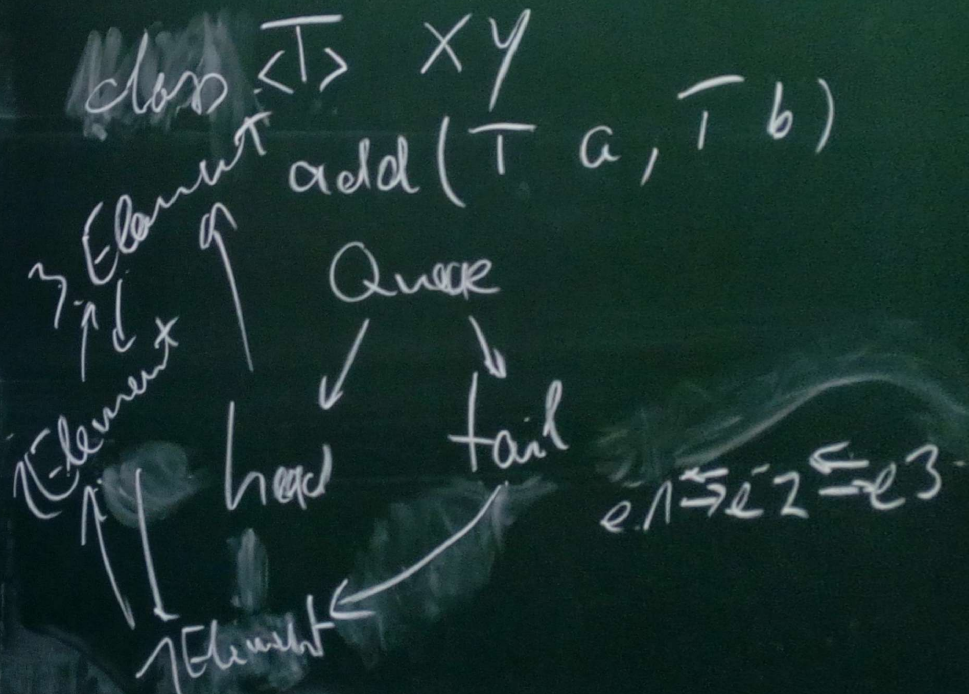 class <T> XY
add(T a, T b)
3. Element
Queue
Element
head
tail
e1 ⇆ e2 ⇆ e3
1Element